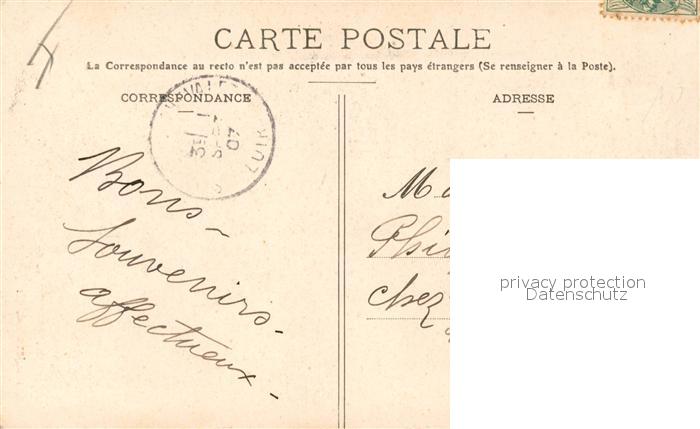 CARTE POSTALE
La Correspondance au recto n'est pas acceptée par tous les pays étrangers (Se renseigner à la Poste).
CORRESPONDANCE
ADRESSE
07
Bons-
souvenirs-
affectueux-
chez
privacy protection
Datenschutz